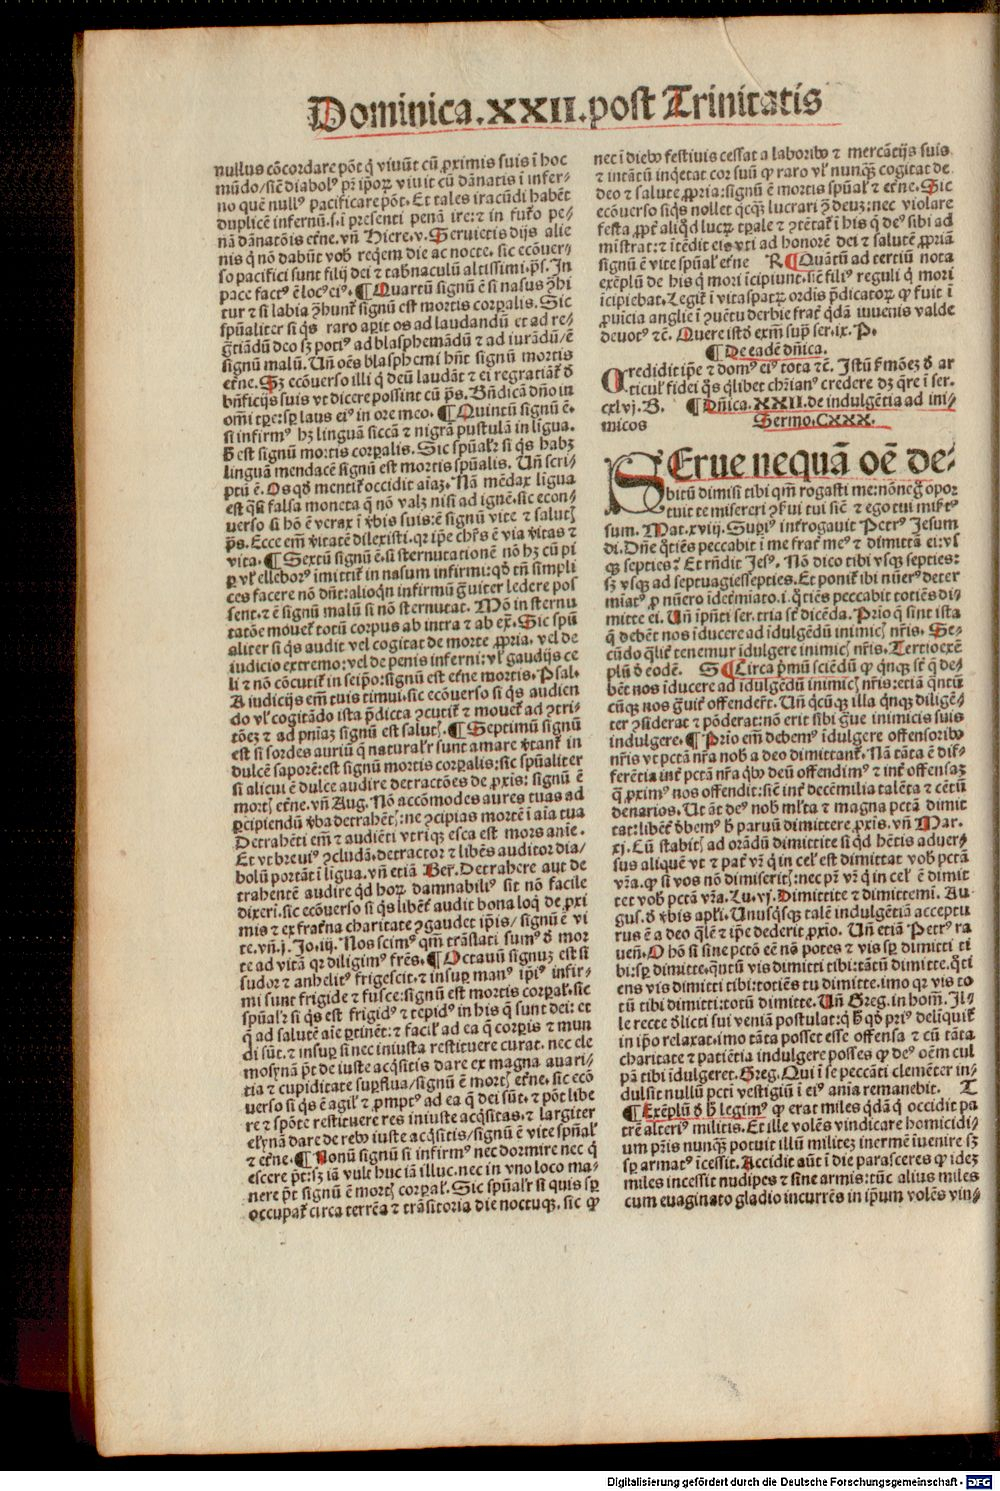 Dominica.XXII.post Trinitatis
nullus cõcordare põt q̇ viuũt cũ ꝓximis suis ĩ hoc
mũdo/siẽ diabolꝰ pr̃ ip̃oꝝ viuit cũ dãnatis ĩ infer-
no quẽ nullꝰ pacificare põt. Et tales iracũdi habẽt
duplicẽ infernũ.s.ĩ presenti penã ire: ⁊ in fuťo pe-
nã dãnatõis eťne. vñ Hiere.v. Seruietis dijs alie
nis q̇ nõ dabũt vob̃ req̇em die ac nocte. sic ecõuer-
so pacifici sunt filij dei ⁊ tab̃naculũ altissimi. p̃s. In
pace factꝰ ẽ locꝰ eiꝰ. ¶ Quartũ signũ ẽ si nasus ꝯhi
tur ⁊ si labia ꝯhunť signũ est mortis corꝑalis. Sic
spũaliter si q̇s raro aꝑit os ad laudandũ et ad re-
g̃tiãdũ deo sꝫ potiꝰ ad blasphemãdũ ⁊ ad iurãdũ/ẽ
signũ malũ. Uñ oẽs blasphemi hñt signũ mortis
eťne. Sꝫ ecõuerso illi q̇ deũ laudãt ⁊ ei regratiãť ď
bñficijs suis vt dicere possint cũ p̃s. Bñdicã dño in
om̃i tꝑe: sꝑ laus eiꝰ in ore meo. ¶ Quintũ signũ ẽ.
si infirmꝰ hꝫ linguã siccã ⁊ nigrã pustulã in ligua.
h̃ est signũ mortis corꝑalis. Sic spũalr̃ si q̇s habꝫ
linguã mendacẽ signũ est mortis spũalis. Uñ scri-
ptũ ẽ. Os qď mentiť occidit aiaꝫ. Nã mẽdax ligua
est q̃si falsa moneta q̃ nõ valꝫ nisi ad ignẽ. sic econ-
uerso si hõ ẽ verax ĩ v̓bis suis: ẽ signũ vite ⁊ saluť
p̃s. Ecce em̃ v̓itatẽ dilexisti. qr ip̃e chr̃s ẽ via v̓itas ⁊
vita. ¶ Sextũ signũ ẽ. si sternutationẽ nõ hꝫ cũ pi
ꝑ vľ elleborꝰ ĩmittiť in nasum infirmi: qď tñ simpli
ces facere nõ dñt: alioq̇n infirmũ g̃uiter ledere pos
sent. ⁊ ẽ signũ malũ si nõ sternutat. Mõ in sternu
tatõe mouet totũ corpus ab intra ⁊ ab ex̃. Sic spũ
aliter si q̇s audit vel cogitat de morte ꝓpria. vel de
iudicio extremo: vel de penis inferni: vľ gaudijs ce
li ⁊ nõ cõcutiť in seip̃o: signũ est eťne mortis. Psal.
A iudicijs em̃ tuis timui. sic ecõuerso si q̇s audien
do vľ cogitãdo ista p̃dicta ꝯcutiť ⁊ mouet ad ꝯtri-
tõeꝫ ⁊ ad pniaꝫ signũ est saluť. ¶ Septimũ signũ
est si sordes auriũ q̃ naturalr̃ sunt amare v̓tanť in
dulcẽ saporẽ: est signũ mortis corꝑalis: sic spũaliter
si alicui ẽ dulce audire detractões de ꝓxis: signũ ẽ
morť eťne. vñ Aug. Nõ accõmodes aures tuas ad
ꝑcipiendũ v̓ba detrahẽť: ne ꝯcipias mortẽ ĩ aĩa tua
Detrahẽti em̃ ⁊ audiẽti vtriq̃ esca est mors anĩe.
Et vt breuiꝰ ꝯcludã. detractor ⁊ libẽs auditor dia/
bolũ portãt ĩ ligua. vñ etiã Ber̃. Detrahere aut de
trahentẽ audire qď hoꝝ damnabiliꝰ sit nõ facile
dixeri. sic ecõuerso si q̇s libẽť audit bona loq̇ de ꝓxi
mis ⁊ ex fraťna charitate ꝯgaudet ip̃is/ signũ ẽ vi
te. vñ.j. Jo.iij. Nos scimꝰ qm̃ trãslati sumꝰ ď mor
te ad vitã qr diligimꝰ fr̃es. ¶ Octauũ signuꝫ est si
sudor ⁊ anhelitꝰ frigescit. ⁊ insuꝑ manꝰ ip̃iꝰ infir-
mi sunt frigide ⁊ fusce: signũ est mortis corꝑal̃. sic
spũalr̃ si q̇s est frigidꝰ ⁊ tepidꝰ in his q̃ sunt dei: et
q̃ ad salutẽ aĩe ꝑtinẽt: ⁊ facil̃ ad ea q̃ corꝑis ⁊ mun
di sũt. ⁊ insuꝑ si nec iniusta restituere curat. nec ele
mosynã p̃t de iuste acq̇sitis dare ex magna auari-
tia ⁊ cupiditate suꝑflua/signũ ẽ morť eťne. sic ecõ
uerso si q̇s ẽ agil̃ ⁊ ꝓmptꝰ ad ea q̃ dei sũt. ⁊ põt libe
re ⁊ spõte restituere res iniuste acq̇sitas. ⁊ largiter
elỹnã dare de rebꝰ iuste acq̇sitis/signũ ẽ vite spũal̃
⁊ eťne. ¶ Nonũ signũ si infirmꝰ nec dormire nec q̇
escere p̃t: sꝫ iã vult huc iã illuc. nec in vno loco ma-
nere p̃t signũ ẽ morť corꝑal̃. Sic spũalr̃ si quis sꝑ
occupať circa terrẽa ⁊ trãsitoria die noctuqꝫ. sic ꝙ
nec ĩ diebꝰ festiuis cessat a laboribꝰ ⁊ mercãtijs suis
⁊ intãtũ inq̇etat cor suũ ꝙ raro vľ nunq̃ꝫ cogitat de
deo ⁊ salute ꝓpria: signũ ẽ mortis spũal̃ ⁊ eťne. Sic
ecõuerso siq̇s nollet q̇cq̃ꝫ lucrari ꝯ̃ deuꝫ: nec violare
festa ꝓpť aliqď lucꝝ tꝑale ⁊ ꝯtẽtať ĩ his q̃ deꝰ sibi ad
mĩstrat: ⁊ ĩtẽdit eis vti ad honorẽ dei ⁊ salutẽ ꝓpriã
signũ ẽ vite spũal̃ eťne R ¶ Quãtũ ad tertiũ nota
exẽplũ de his q̇ mori ĩcipiunt. siẽ filiꝰ reguli q̇ mori
ĩcipiebat. Legiť ĩ vitaspatꝝ ordis p̃dicatoꝝ ꝙ fuit ĩ
ꝓuicia anglie ĩ ꝯuẽtu derbie frať q̇dã iuuenis valde
deuotꝰ ⁊c̃. Quere istď exm̃ sup̃ ser.ix. P.
¶ De eadẽ dñica.
Credidit ip̃e ⁊ domꝰ eiꝰ tota ⁊c̃. Istũ ẜmõeꝫ ď ar
ticul̃ fidei q̇s q̇libet chr̃ianꝰ credere dꝫ q̃re ĩ ser.
cxlvj. B. ¶ Dñica.XXII. de indulgẽtia ad ini-
micos Sermo.CXXX.
SErue nequã oẽ de-
bitũ dimisi tibi qm̃ rogasti me: nõne g̃ opor
tuit te misereri ꝯẜui tui siẽ ⁊ ego tui miẜtꝰ
sum. Mat.xviij. Supiꝰ inťrogauit Petrꝰ Jesum
di. Dñe q̇tiẽs peccabit ĩ me frať meꝰ ⁊ dimittã ei: vs
qꝫ septies? Et rñdit Jesꝰ. Nõ dico tibi vsqꝫ septies:
sꝫ vsqꝫ ad septuagiessepties. Et poniť ibi nũerꝰ deter
mĩatꝰ ꝓ nũero ĩdeťmĩato.i. q̇tiẽs peccabit totiẽs di-
mitte ei. Uñ ip̃nti ser. tria sť dicẽda. Prĩo q̃ sint ista
q̃ debẽt nos ĩducere ad ĩdulgẽdũ inimicť nr̃is. Se-
cũdo q̃liť tenemur ĩdulgere inimicť nr̃is. Tertio exẽ
plũ ď eodẽ. S ¶ Circa p̃mũ sciẽdũ ꝙ q̇nqꝫ sť q̃ de-
bẽt nos ĩducere ad ĩdulgẽdũ inimicť nr̃is: etiã q̃ntũ
cũqꝫ nos g̃uiť offenderť. Uñ q̇cũqꝫ illa q̇nqꝫ diligẽ-
ter ꝯsiderat ⁊ põderat: nõ erit sibi g̃ue inimicis suis
indulgere. ¶ Prĩo em̃ debemꝰ ĩdulgere offensoribꝰ
nr̃is vt pctã nr̃a nob̃ a deo dimittanť. Nã tãta ẽ dif-
ferẽtia inť pctã nr̃a q̇bꝰ deũ offendimꝰ ⁊ inť offensaꝫ
q̃ ꝓximꝰ nos offendit: siẽ inť decẽmilia talẽta ⁊ cẽtũ
denarios. Ut ãt deꝰ nob̃ mľta ⁊ magna pctã dimit
tat: libẽť ďbemꝰ h̃ paruũ dimittere ꝓxis. vñ Mar.
xj. Cũ stabiť ad orãdũ dimittite si qď hẽtis aduer-
sus aliquẽ vt ⁊ pať vr̃ q̇ in cel̃ est dimittat vob̃ pctã
vr̃a. ꝙ si vos nõ dimiseriť: nec pr̃ vr̃ q̇ in cel̃ ẽ dimit
tet vob̃ pctã vr̃a. Lu.vj. Dimittite ⁊ dimittemĩ. Au-
gus. ď v̓bis apľi. Unusq̇sqꝫ talẽ indulgẽtiã acceptu
rus ẽ a deo q̃lẽ ⁊ ip̃e dederit ꝓxĩo. Uñ etiã Petrꝰ ra
ueñ. O hõ si sine pctõ eẽ nõ potes ⁊ vis sꝑ dimitti ti
bi: sꝑ dimitte. q̃ntũ vis dimitti tibi: tãtũ dimitte. q̇ti
ens vis dimitti tibi: totiẽs tu dimitte. imo qr vis to
tũ tibi dimitti: totũ dimitte. Uñ Greg. in hom̃. Il-
le recte ďlicti sui veniã postulat: q̇ h̃ qď priꝰ delinquiť
in ip̃o relaxat. imo tãta posset esse offensa ⁊ cũ tãta
charitate ⁊ patiẽtia indulgere posses ꝙ deꝰ oẽm cul
pã tibi ĩdulgeret. Greg. Qui ĩ se peccãti clemẽter in-
dulsit nullũ pcti vestigiũ ĩ eiꝰ anĩa remanebit. T
¶ Exẽplũ ď h̃ legimꝰ ꝙ erat miles q̇dã q̇ occidit pa
trẽ alteriꝰ militis. Et ille volẽs vindicare homicidi-
um pr̃is nunq̃ꝫ potuit illũ militeꝫ inermẽ ĩuenire sꝫ
sꝑ armatꝰ ĩcessit. Accidit aũt ĩ die parasceres ꝙ idẽꝫ
miles incessit nudipes ⁊ sine armis: tũc alius miles
cum euaginato gladio incurrẽs in ip̃um volẽs vin-
Digitalisierung gefördert durch die Deutsche Forschungsgemeinschaft - DFG